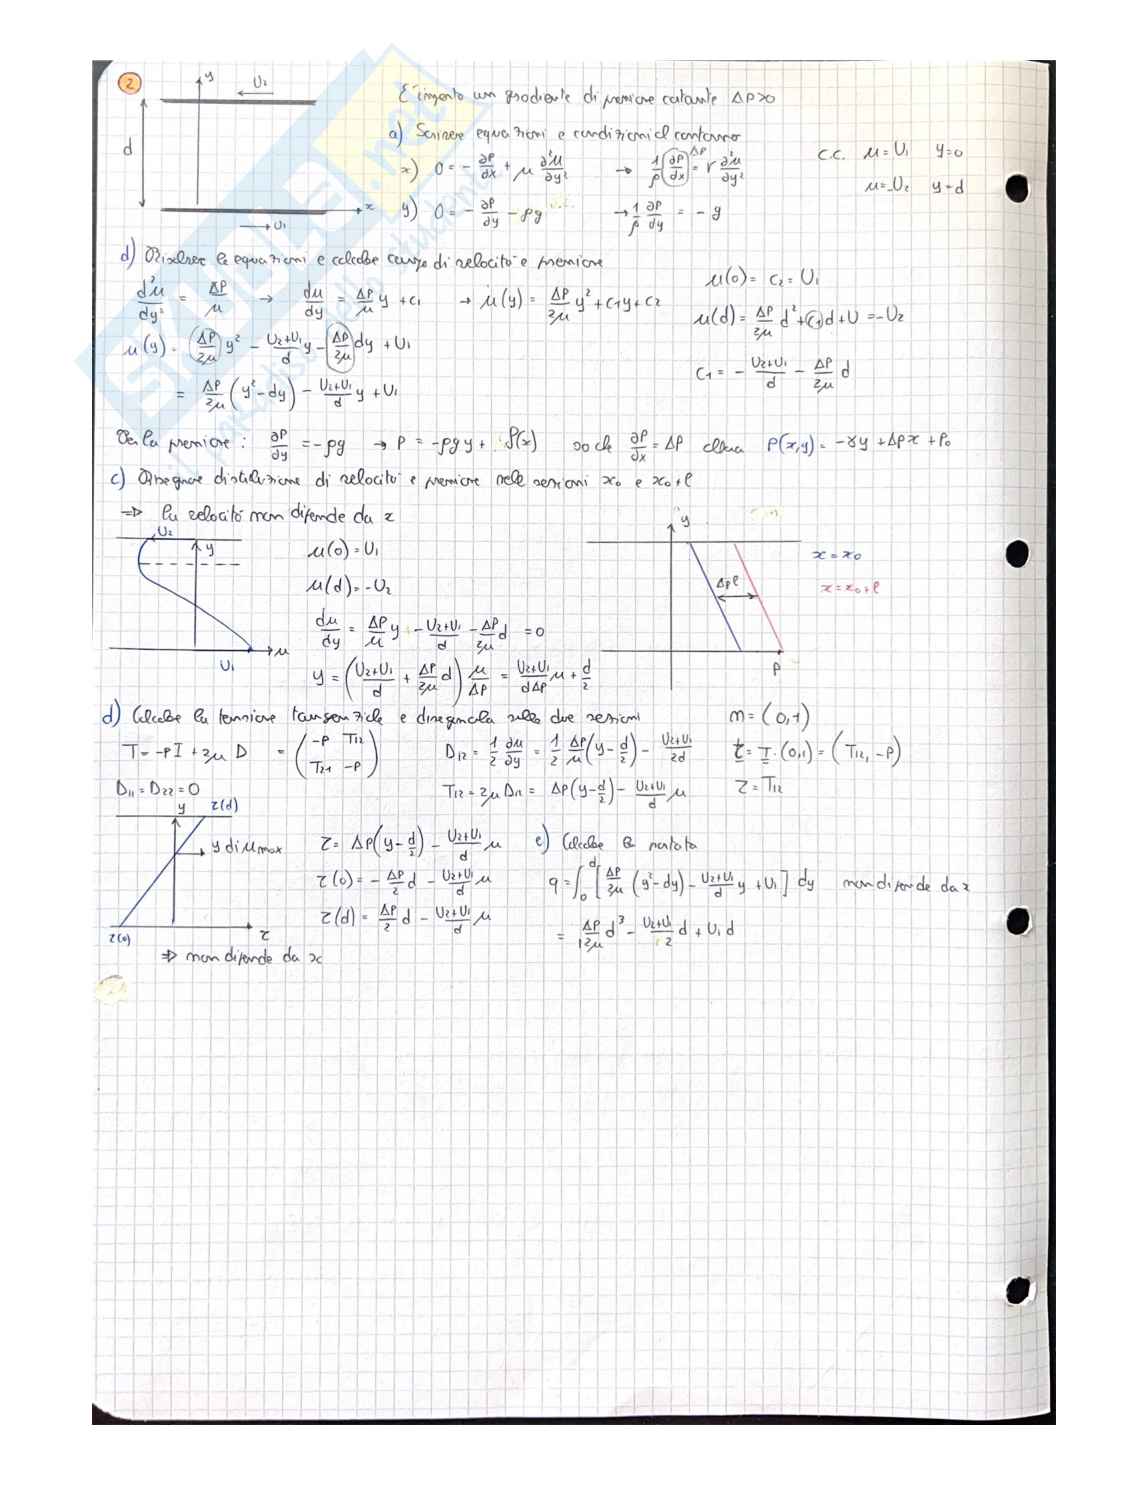 2
y
U₂
d
x
U₁
E' imposto un gradiente di pressione costante ΔP>0
a) Scrivere equazioni e condizioni al contorno
x) 0 = - ∂P/∂x + μ ∂²u/∂y² → 1/ρ ∂P/∂x = ν ∂²u/∂y²
ΔP
c.c. u = U₁ y=0
u = -U₂ y=d
y) 0 = - ∂P/∂y - ρg → 1/ρ ∂P/∂y = - g
d) Risolvere le equazioni e calcolare campo di velocità e pressione
d²u/dy² = ΔP/μ → du/dy = ΔP/μ y + c₁ → u(y) = ΔP/2μ y² + c₁y + c₂
u(0) = c₂ = U₁
u(d) = ΔP/2μ d² + c₁d + U = -U₂
c₁ = - U₂+U₁/d - ΔP/2μ d
u(y) = ΔP/2μ y² - U₂+U₁/d y - ΔP/2μ dy + U₁
= ΔP/2μ (y²-dy) - U₂+U₁/d y + U₁
Per la pressione : ∂P/∂y = -ρg → P = -ρgy + f(x) so che ∂P/∂x = ΔP allora P(x,y) = -γy + ΔPx + P₀
c) Disegnare distribuzione di velocità e pressione nelle sezioni x₀ e x₀+l
⇒ la velocità non dipende da x
U₂
y
U₁
u
u(0) = U₁
u(d) = -U₂
du/dy = ΔP/μ y - U₂+U₁/d - ΔP/2μ d = 0
y = (U₂+U₁/d + ΔP/2μ d) μ/ΔP = U₂+U₁/dΔP μ + d/2
y
ΔPl
P
x = x₀
x = x₀+l
d) Calcolare la tensione tangenziale e disegnarla nelle due sezioni
n = (0,1)
T = -PI + 2μ D = (-P T₁₂ T₂₁ -P)
D₁₂ = 1/2 ∂u/∂y = 1/2 ΔP/μ (y - d/2) - U₂+U₁/2d
t = T·(0,1) = (T₁₂, -P)
D₁₁ = D₂₂ = 0
T₁₂ = 2μ D₁₂ = ΔP(y - d/2) - U₂+U₁/d μ
τ = T₁₂
y
τ(d)
y di u max
τ(0)
τ
⇒ non dipende da x
τ = ΔP(y - d/2) - U₂+U₁/d μ
τ(0) = - ΔP/2 d - U₂+U₁/d μ
τ(d) = ΔP/2 d - U₂+U₁/d μ
e) Calcolare la portata
q = ∫₀ᵈ [ΔP/2μ (y²-dy) - U₂+U₁/d y + U₁] dy non dipende da x
= ΔP/12μ d³ - U₂+U₁/2 d + U₁ d